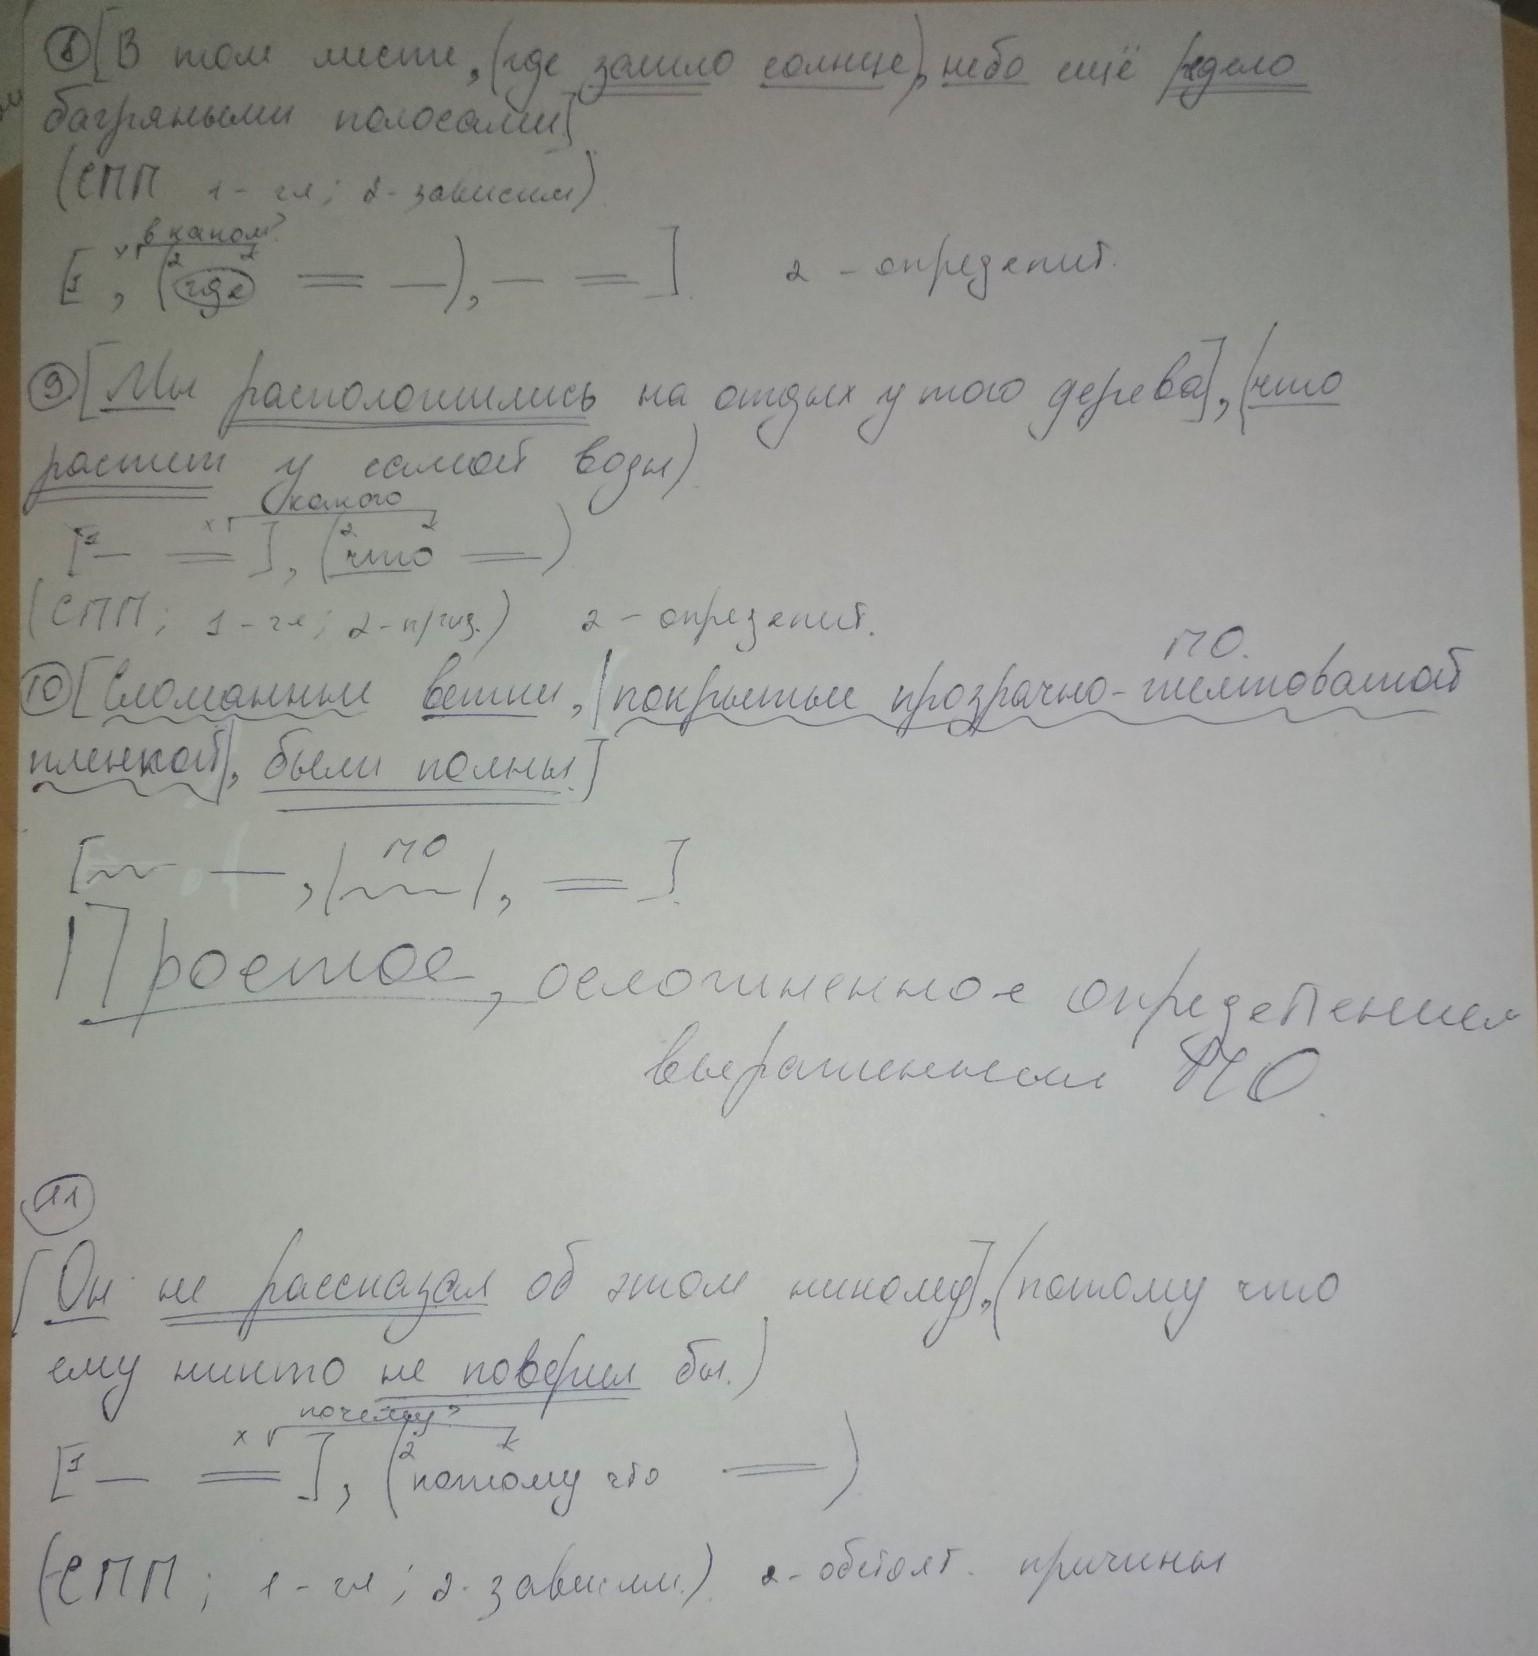 8 [В том месте, (где зашло солнце), небо ещё рдело
багряными полосами]
(СПП 1-гл; 2-зависим)
в каком?
[1 х, (2 где = –), – =] 2 – определит.
9 [Мы расположились на отдых у того дерева], (что
растет у самой воды)
какого
[1 – = х], (2 что =)
(СПП; 1-гл; 2-прид.) 2 – определит.
ПО.
10 [Сломанные ветки, |покрытые прозрачно-желтоватой
пленкой|, были полны.]
ПО
[~~ –, |~~~|, =].
Простое, осложненное определением
выраженным ПО.
11
[Он не рассказал об этом никому], (потому что
ему никто не поверил бы.)
почему?
[1 – = х], (2 потому что =)
(СПП; 1-гл; 2-зависим.) 2-обстоят. причины